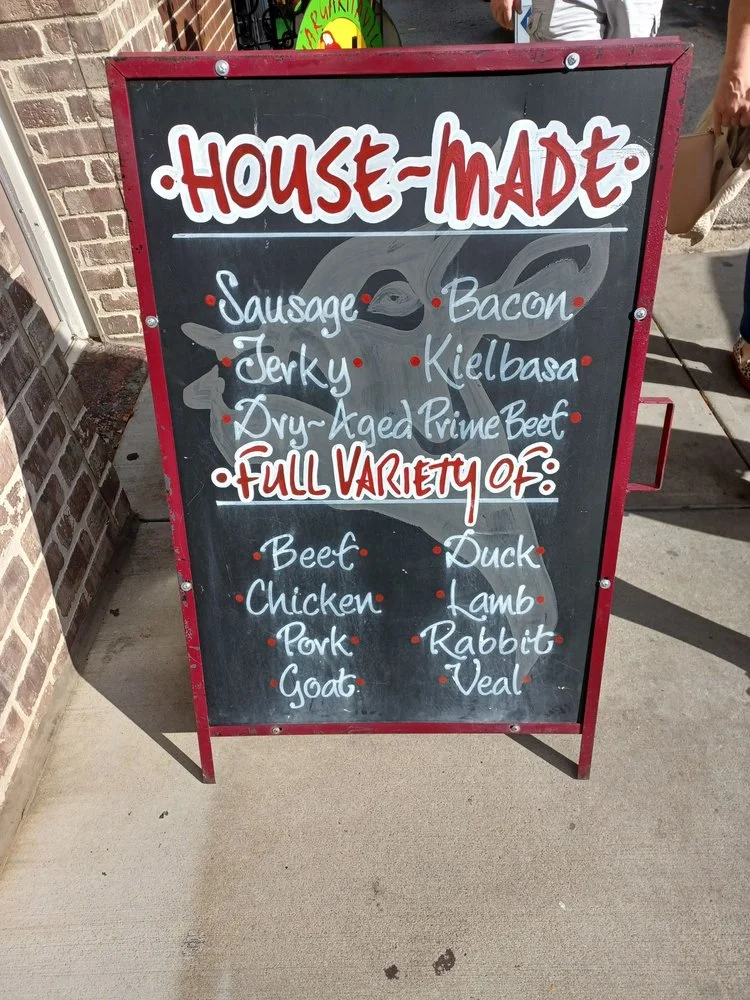 MARGARITAVILLE
HOUSE~MADE
Sausage Bacon
Jerky Kielbasa
Dry~Aged Prime Beef
FULL VARIETY OF:
Beef Duck
Chicken Lamb
Pork Rabbit
Goat Veal